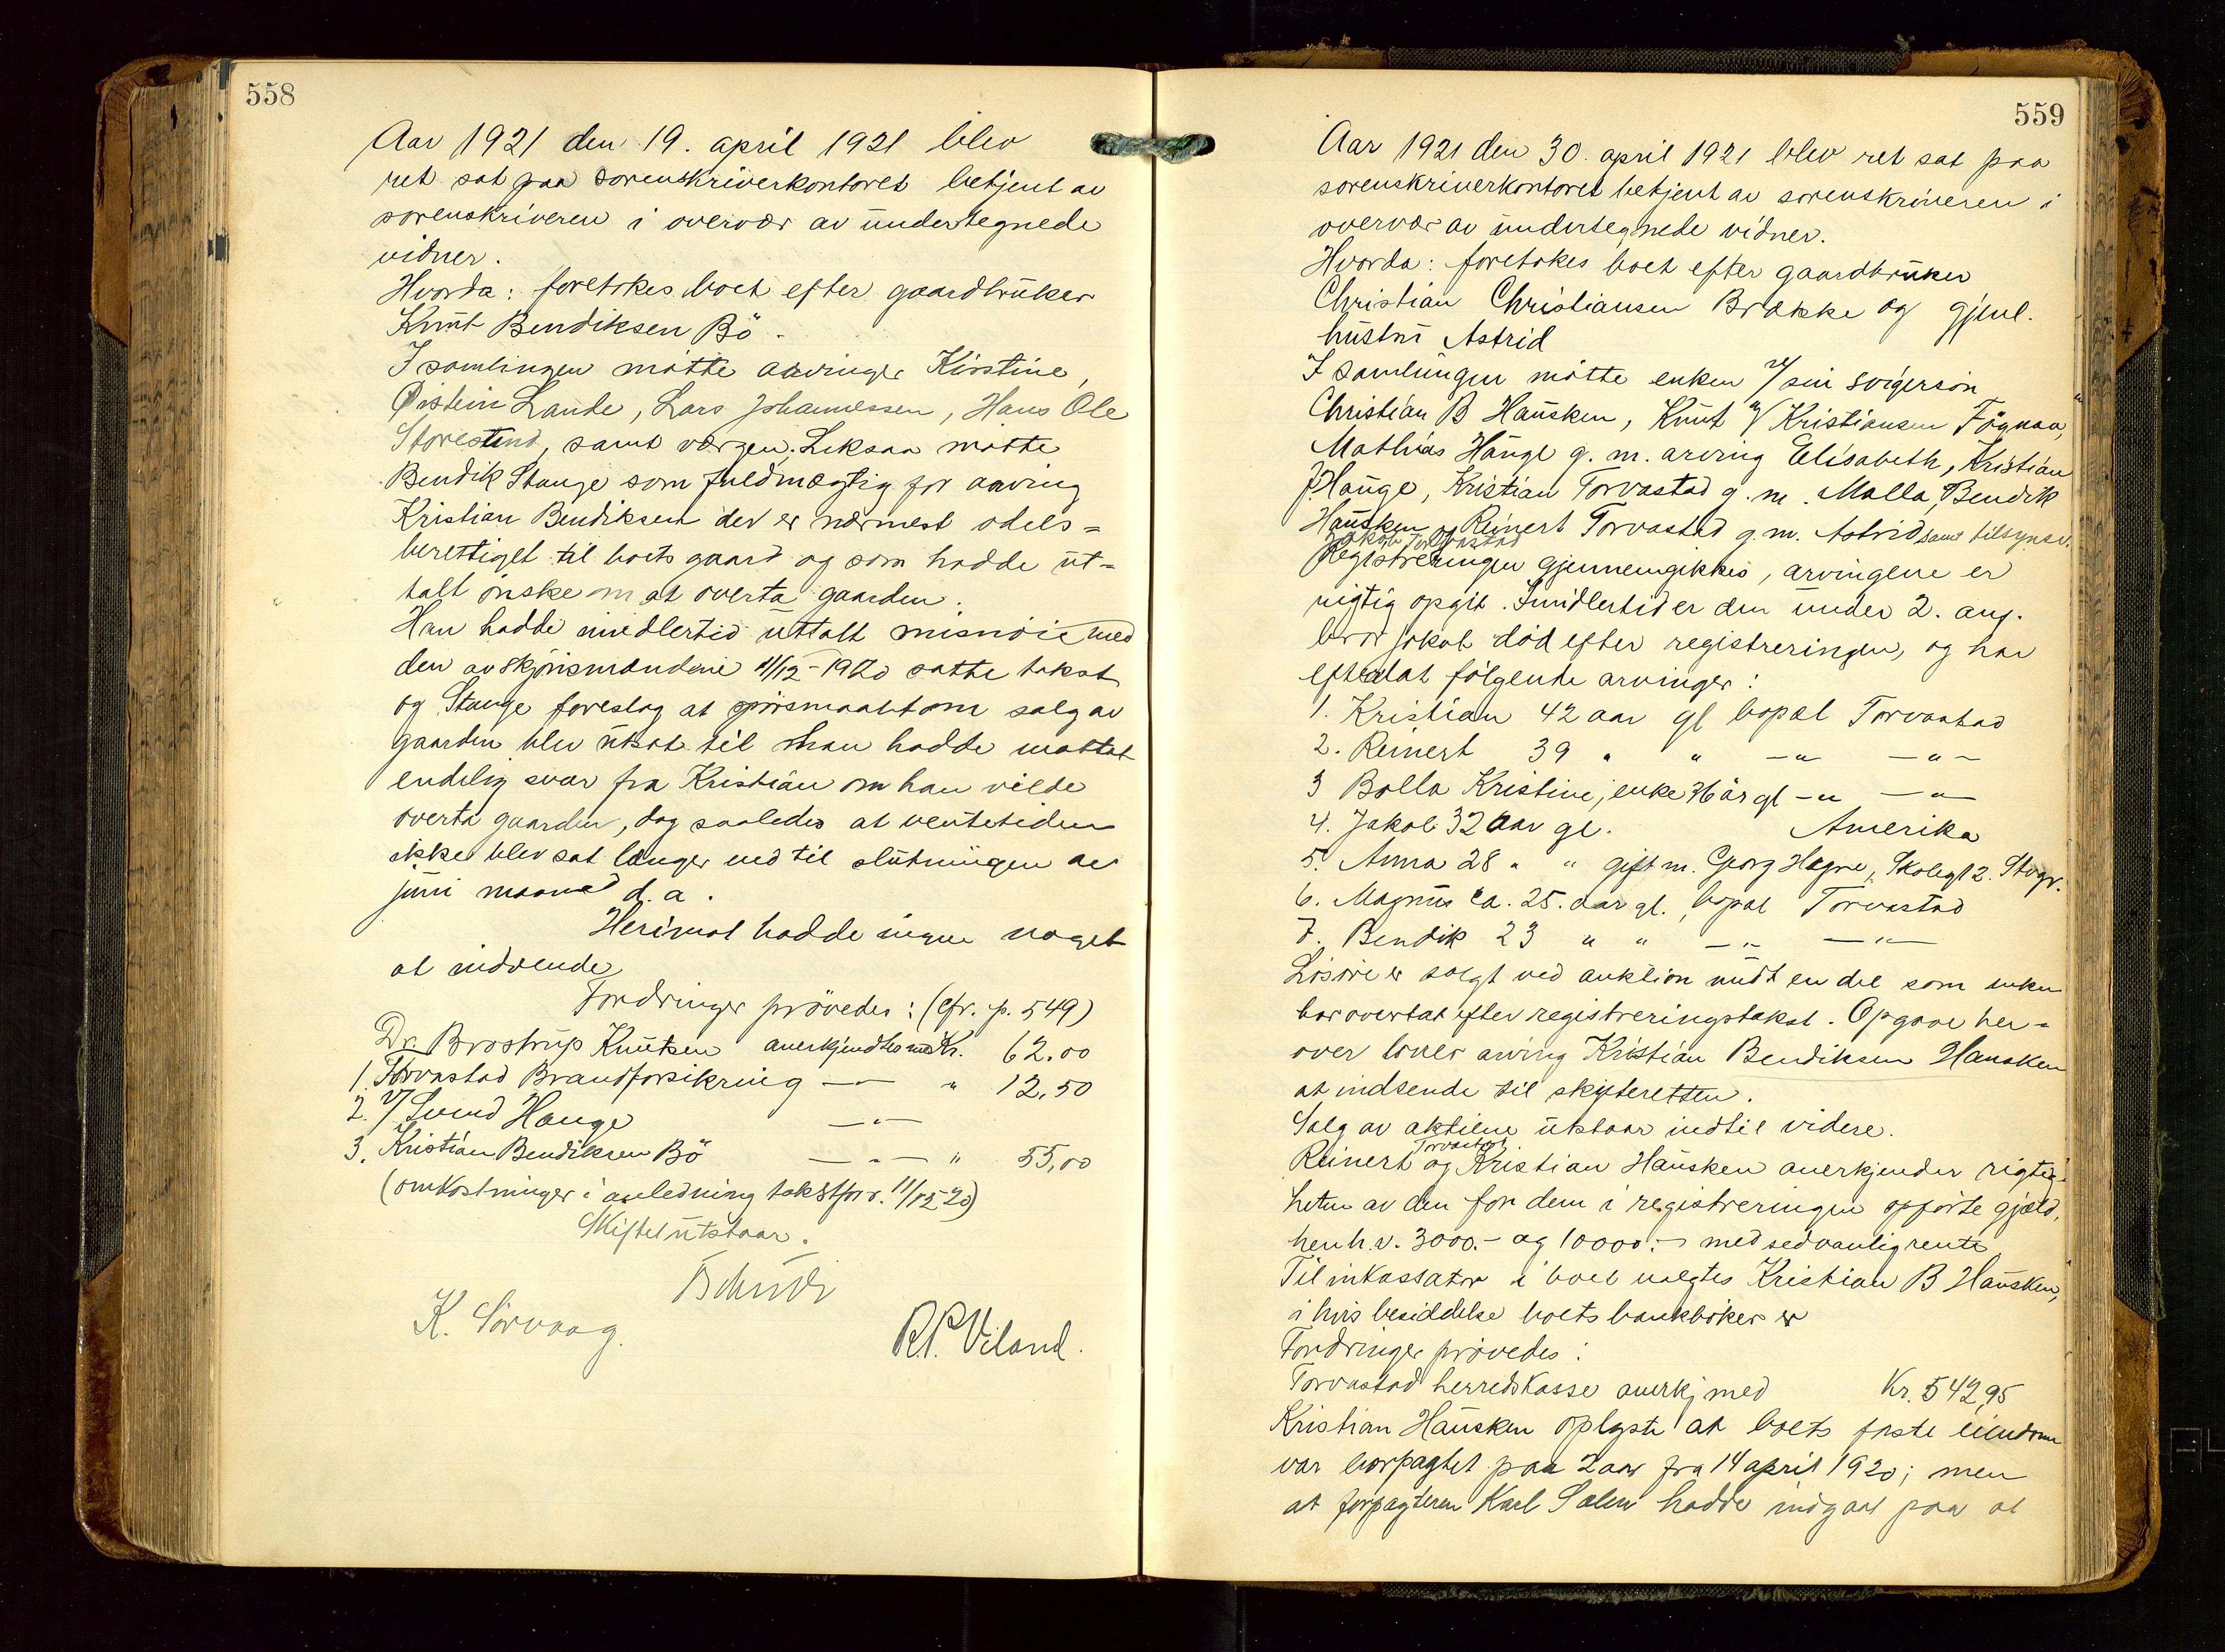 558
Aar 1921 den 19. april 1921 blev
ret sat paa sorenskriverkontoret betjent av
sorenskriveren i overvær av undertegnede
vidner.
Hvorda: foretokes boet efter gaardbruker
Knut Bendiksen Bö.
I samlingen mötte arvinger Kirstine,
Øistein Lande, Lars Johannessen, Hans Ole
Storesund, samt værgen. Likesaa mötte
Bendik Stange som fuldmægtig for arving
Kristian Bendiksen der er nærmest odels=
berettiget til boets gaard og som hadde ut=
talt önske om at overta gaarden.
Han hadde imidlertid uttalt misnöie med
den av skjönsmændene 11/12-1920 satte takst
og Stange foreslog at spörsmaalet om salg av
gaarden blev utsat til han hadde mottat
endelig svar fra Kristian om han vilde
overta gaarden, dog saaledes at ventetiden
ikke blev sat længer end til slutningen av
juni maaned d.a.
Herimot hadde ingen noget
at indvende
Fordringer prövedes: (cfr. p. 549)
Dr. Brostrup Knutsen anerkjendtes med Kr. 62.00
1. Torvastad Brandforsikring -"- " 12,50
2. v/ Svend Hauge -"-
3. Kristian Bendiksen Bö -"- " 55,00
(omkostninger i anledning takstforr. 11/12 20)
Skiftet utstaar.
K. Sörvaag. R.P. Viland.
559
Aar 1921 den 30. april 1921 blev ret sat paa
sorenskriverkontoret betjent av sorenskriveren i
overvær av undertegnede vidner.
Hvorda: foretokes boet efter gaardbruker
Christian Christiansen Brække og gjenl.
hustru Astrid
I samlingen mötte enken v/ sin svigersön
Christian B Hausken, Knut Kristiansen
Mathias Hauge g. m. arving Elisabeth, Kristian
J. Hauge, Kristian Torvastad g. m. Malla, Bendik
Hausken og Reinert Torvastad g. m. Astrid samt tilsynsv.
Jakob Torvastad
Registreringen gjennemgikkes, arvingene er
rigtig opgit. Imidlertid er den under 2. anf.
bror Jakob död efter registreringen, og har
efterlat fölgende arvinger:
1. Kristian 42 aar gl bopæl Torvastad
2. Reinert 39 " " -"- -"-
3 Bolla Kristine, enke 36 år gl -"- -"-
4. Jakob 32 aar gl. Amerika
5. Anna 28 " " gift m. Georg Hagne, Skolegt 2. Stvgr.
6. Magnus ca. 25. aar gl. bopæl Torvastad
7. Bendik 23 " " -"- -"-
Lösöre er solgt ved auktion undt en del som enken
har overtat efter registreringstakst. Opgave her=
over lover arving Kristian Bendiksen Hausken
at indsende til skifteretten.
Salg av aktiene utstaar indtil videre.
Torvastad
Reinert og Kristian Hausken anerkjender rigtig-
heten av den for dem i registreringen opförte gjæld,
henh.v. 3000.- og 10000.- med sedvanlig rente
Til inkassator i boet valgtes Kristian B Hausken,
i hvis besiddelse boets bankböker er
Fordringer prövedes:
Torvastad herredskasse anerkj med Kr. 542,95
Kristian Hausken oplyste at boets faste eiendom
var bortpagtet paa 2 aar fra 14 april 1920; men
at forpagteren Karl Salen hadde indgaat paa at